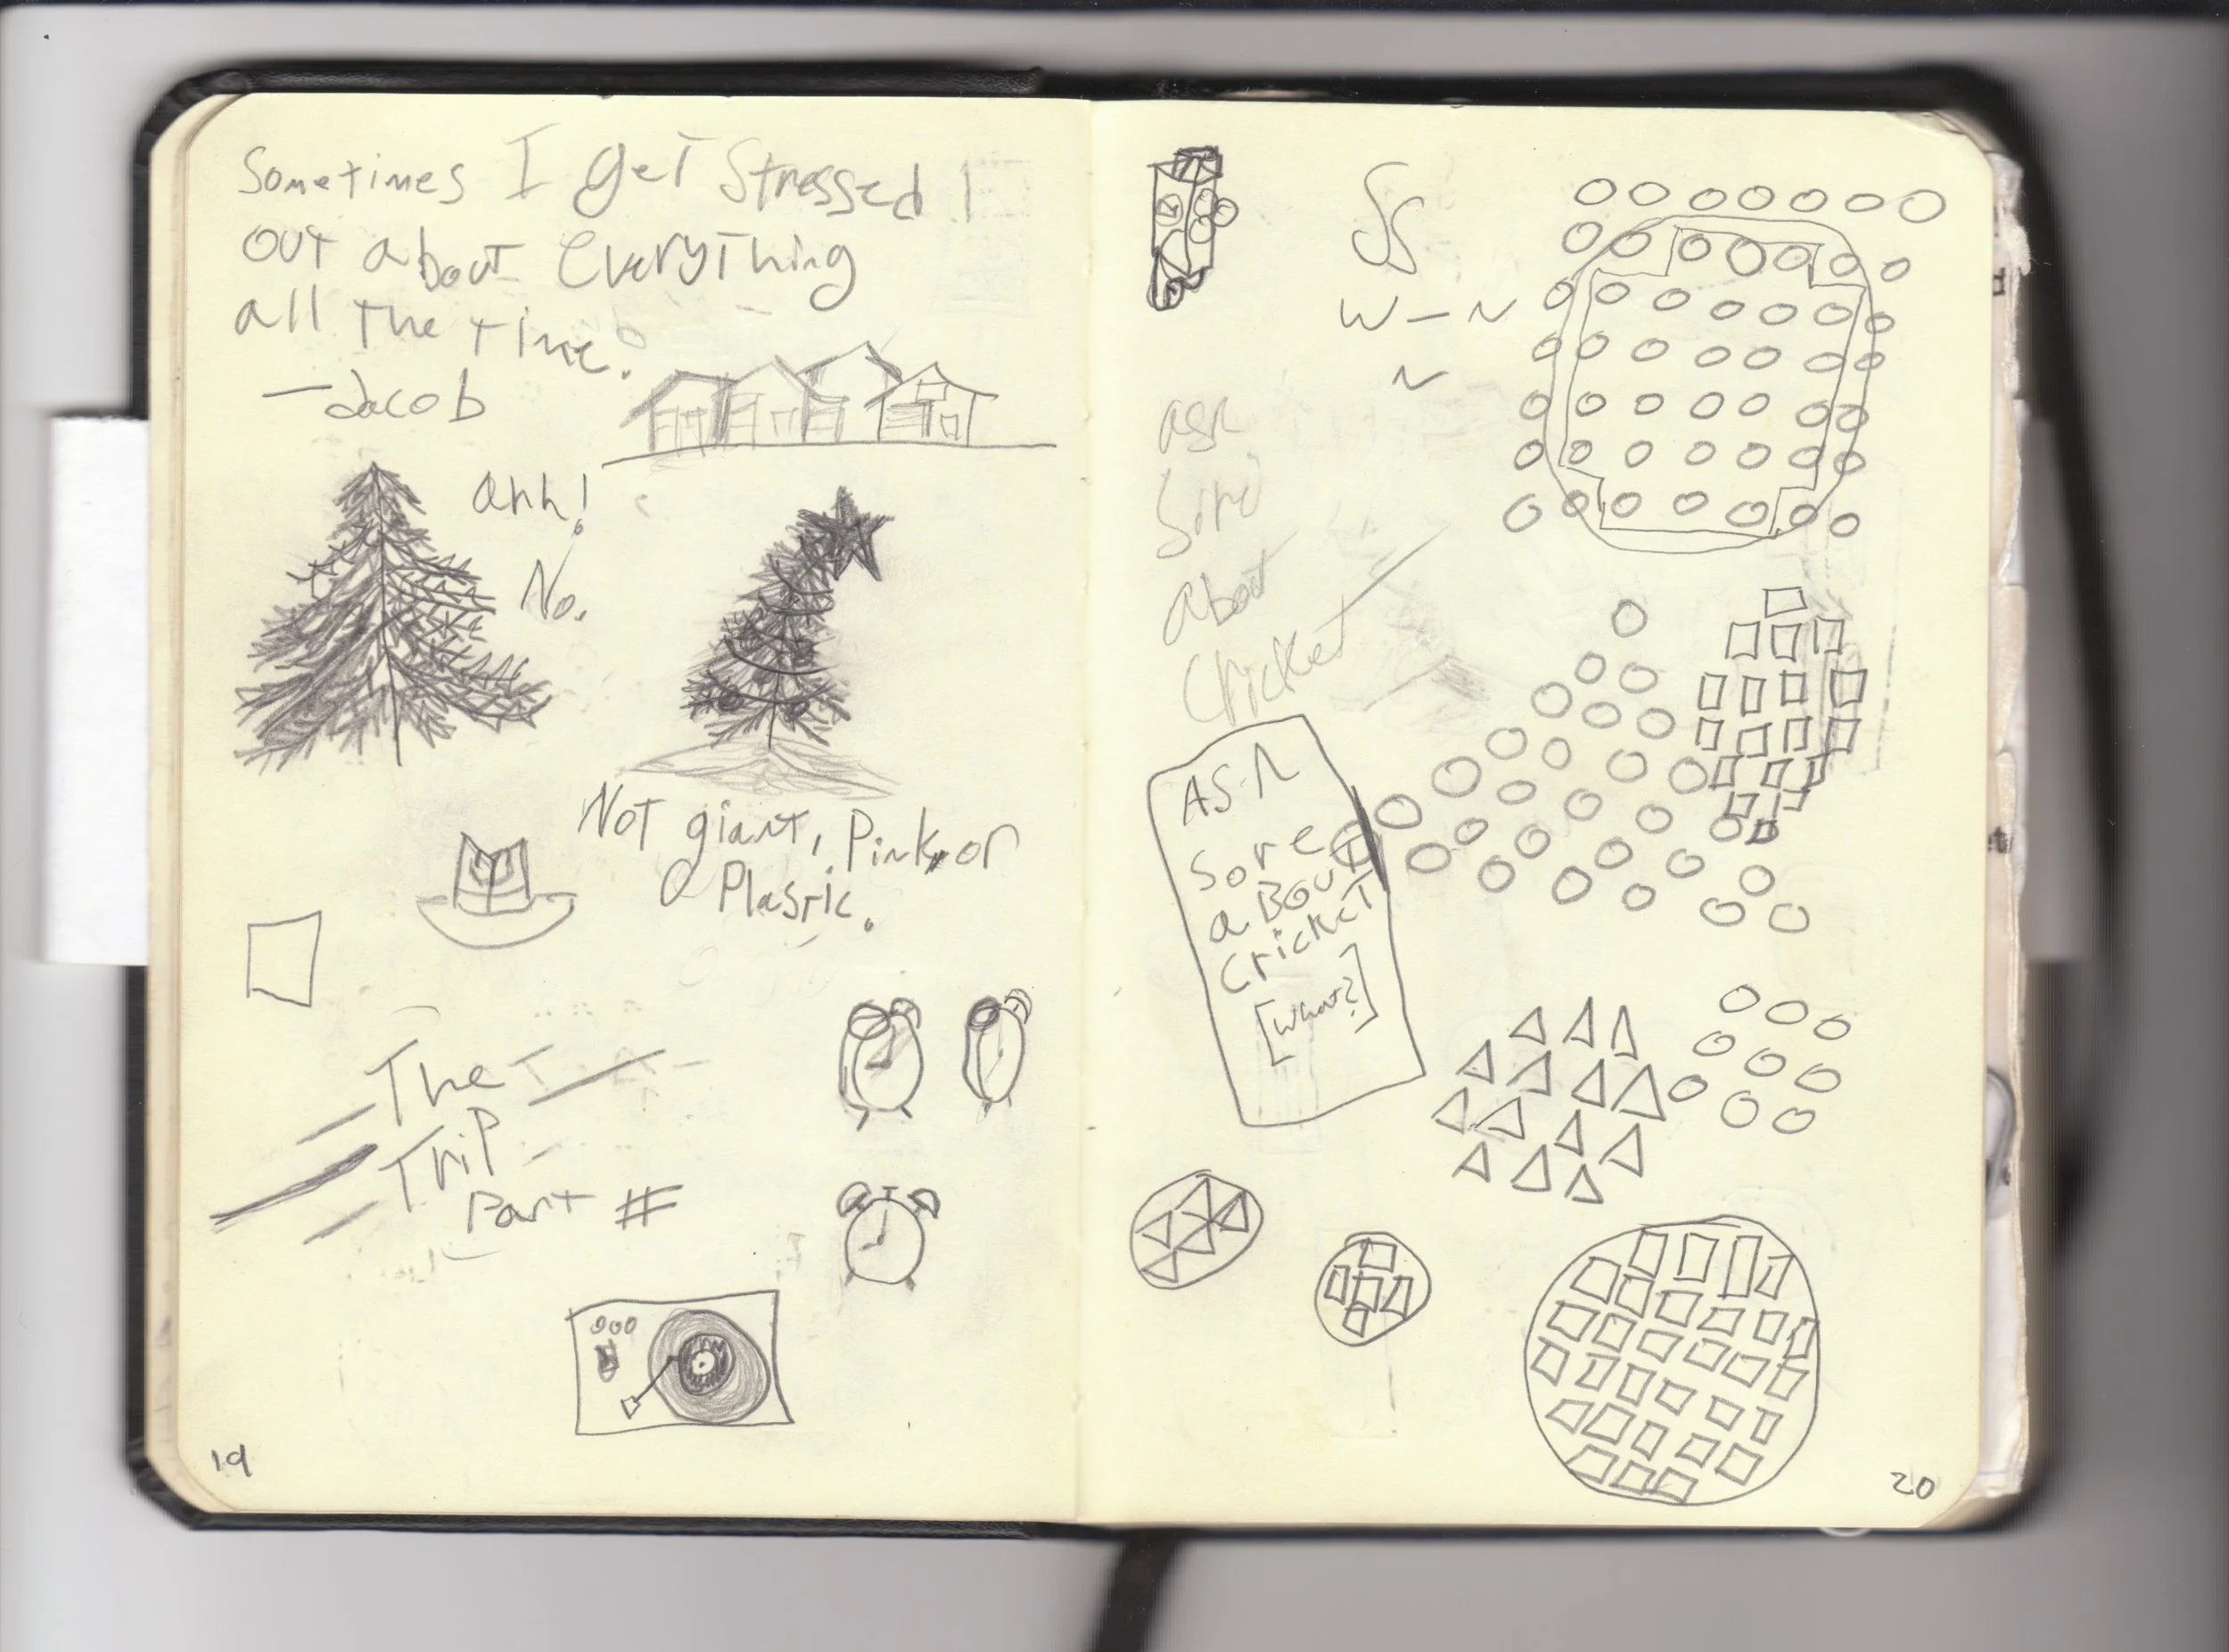 Sometimes I get Stressed
out about Everything
all the time.
—Jacob
ahh!
No.
Not giant, Pink, or
Plastic.
The
Trip
Part #
19
asn
about
Cricket
AS-N
Sore
aBout
CrickeT
[what?]
20